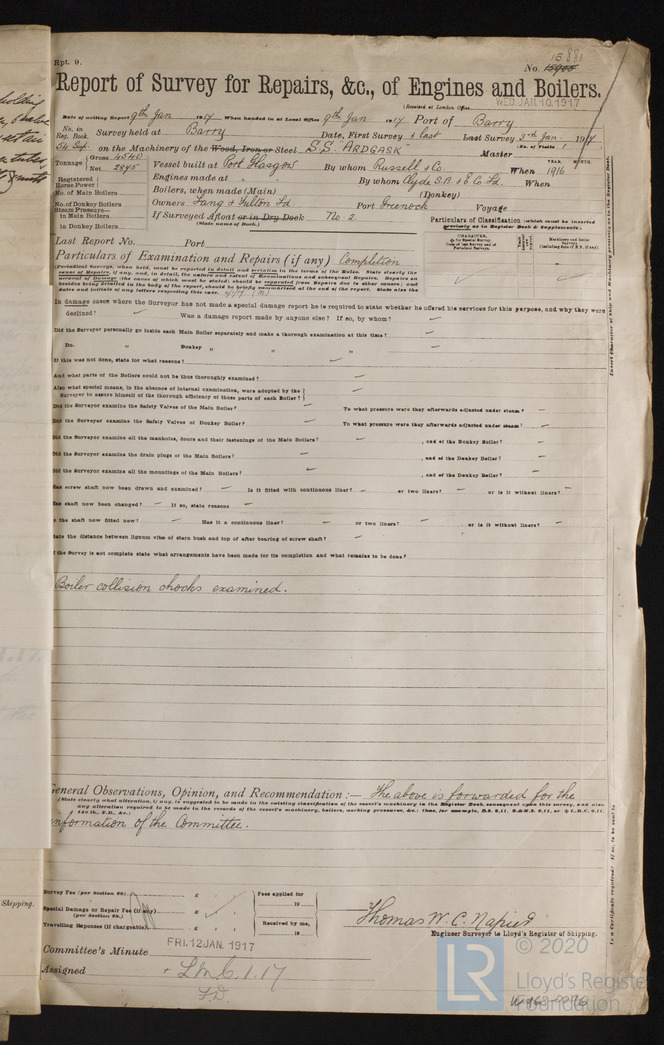 Rpt. 9.
No. 15900 15881
Report of Survey for Repairs, &c., of Engines and Boilers.
(Received at London Office WED. JAN. 10. 1917
Date of writing Report 9th Jan 1917 When handed in at Local Office 9th Jan 1917 Port of Barry
No. in Reg. Book. Survey held at Barry Date, First Survey & last Last Survey 3rd Jan 1917
on the Machinery of the Wood, Iron or Steel S.S. "ARDGASK" Master (No. of Visits 1
Tonnage Gross 4540 Net 2895 Vessel built at Port Glasgow By whom Russell & Co. When 1916 YEAR. MONTH.
Registered Horse Power Engines made at " By whom Clyde S.B. & E. Co Ld. When
No. of Main Boilers Boilers, when made (Main) (Donkey)
No. of Donkey Boilers Owners Lang & Fulton Ld. Port Greenock Voyage
Steam Pressure— in Main Boilers If Surveyed Afloat or in Dry Dock No. 2.
in Donkey Boilers (State name of Dock.)
Particulars of Classification (which must be inserted precisely as in Register Book & Supplements).
Last Report No. Port
Particulars of Examination and Repairs (if any) Completion
Periodical Surveys, when held, must be reported in detail and seriatim in the terms of the Rules. State clearly the
In damage cases where the Surveyor has not made a special damage report he is required to state whether he offered his services for this purpose, and why they were
declined? Was a damage report made by anyone else? If so, by whom?
Did the Surveyor personally go inside each Main Boiler separately and make a thorough examination at this time?
Do. " Donkey " " "
If this was not done, state for what reasons?
And what parts of the Boilers could not be thoroughly examined?
Also what special means, in the absence of internal examination, were adopted by the
Surveyor to assure himself of the thorough efficiency of those parts of each Boiler?
Did the Surveyor examine the Safety Valves of the Main Boiler? To what pressure were they afterwards adjusted under steam?
Did the Surveyor examine the Safety Valves of Donkey Boiler? To what pressure were they afterwards adjusted under steam?
Did the Surveyor examine all the manholes, doors and their fastenings of the Main Boilers? , and of the Donkey Boiler?
Did the Surveyor examine the drain plugs of the Main Boilers? , and of the Donkey Boiler?
Did the Surveyor examine all the mountings of the Main Boilers? , and of the Donkey Boiler?
Has screw shaft now been drawn and examined? Is it fitted with continuous liner? or two liners? or is it without liners?
Has shaft now been changed? If so, state reasons
Is the shaft now fitted new? Has it a continuous liner? or two liners? or is it without liners?
State the distance between lignum vitæ of stern bush and top of after bearing of screw shaft?
If the Survey is not complete state what arrangements have been made for its completion and what remains to be done?
Boiler collision chocks examined.
General Observations, Opinion, and Recommendation:— The above is forwarded for the
(State clearly what alteration, if any, is suggested to be made in the existing classification of the vessel's machinery in the Register Book, consequent upon this survey, and also
any alteration required to be made in the records of the vessel's machinery, boilers, working pressures, &c.:
information of the Committee.
Survey Fee (per Section 28) £ Fees applied for
19
Special Damage or Repair Fee (if any) £
(per Section 28.)
Travelling Expenses (if chargeable) £ Received by me,
19
Thomas W. C. Napier
Engineer Surveyor to Lloyd's Register of Shipping.
Committee's Minute FRI. 12 JAN. 1917
Assigned + LMC. 1.17
F.D.
Shipping.
© 2020
LR Lloyd's Register
Foundation